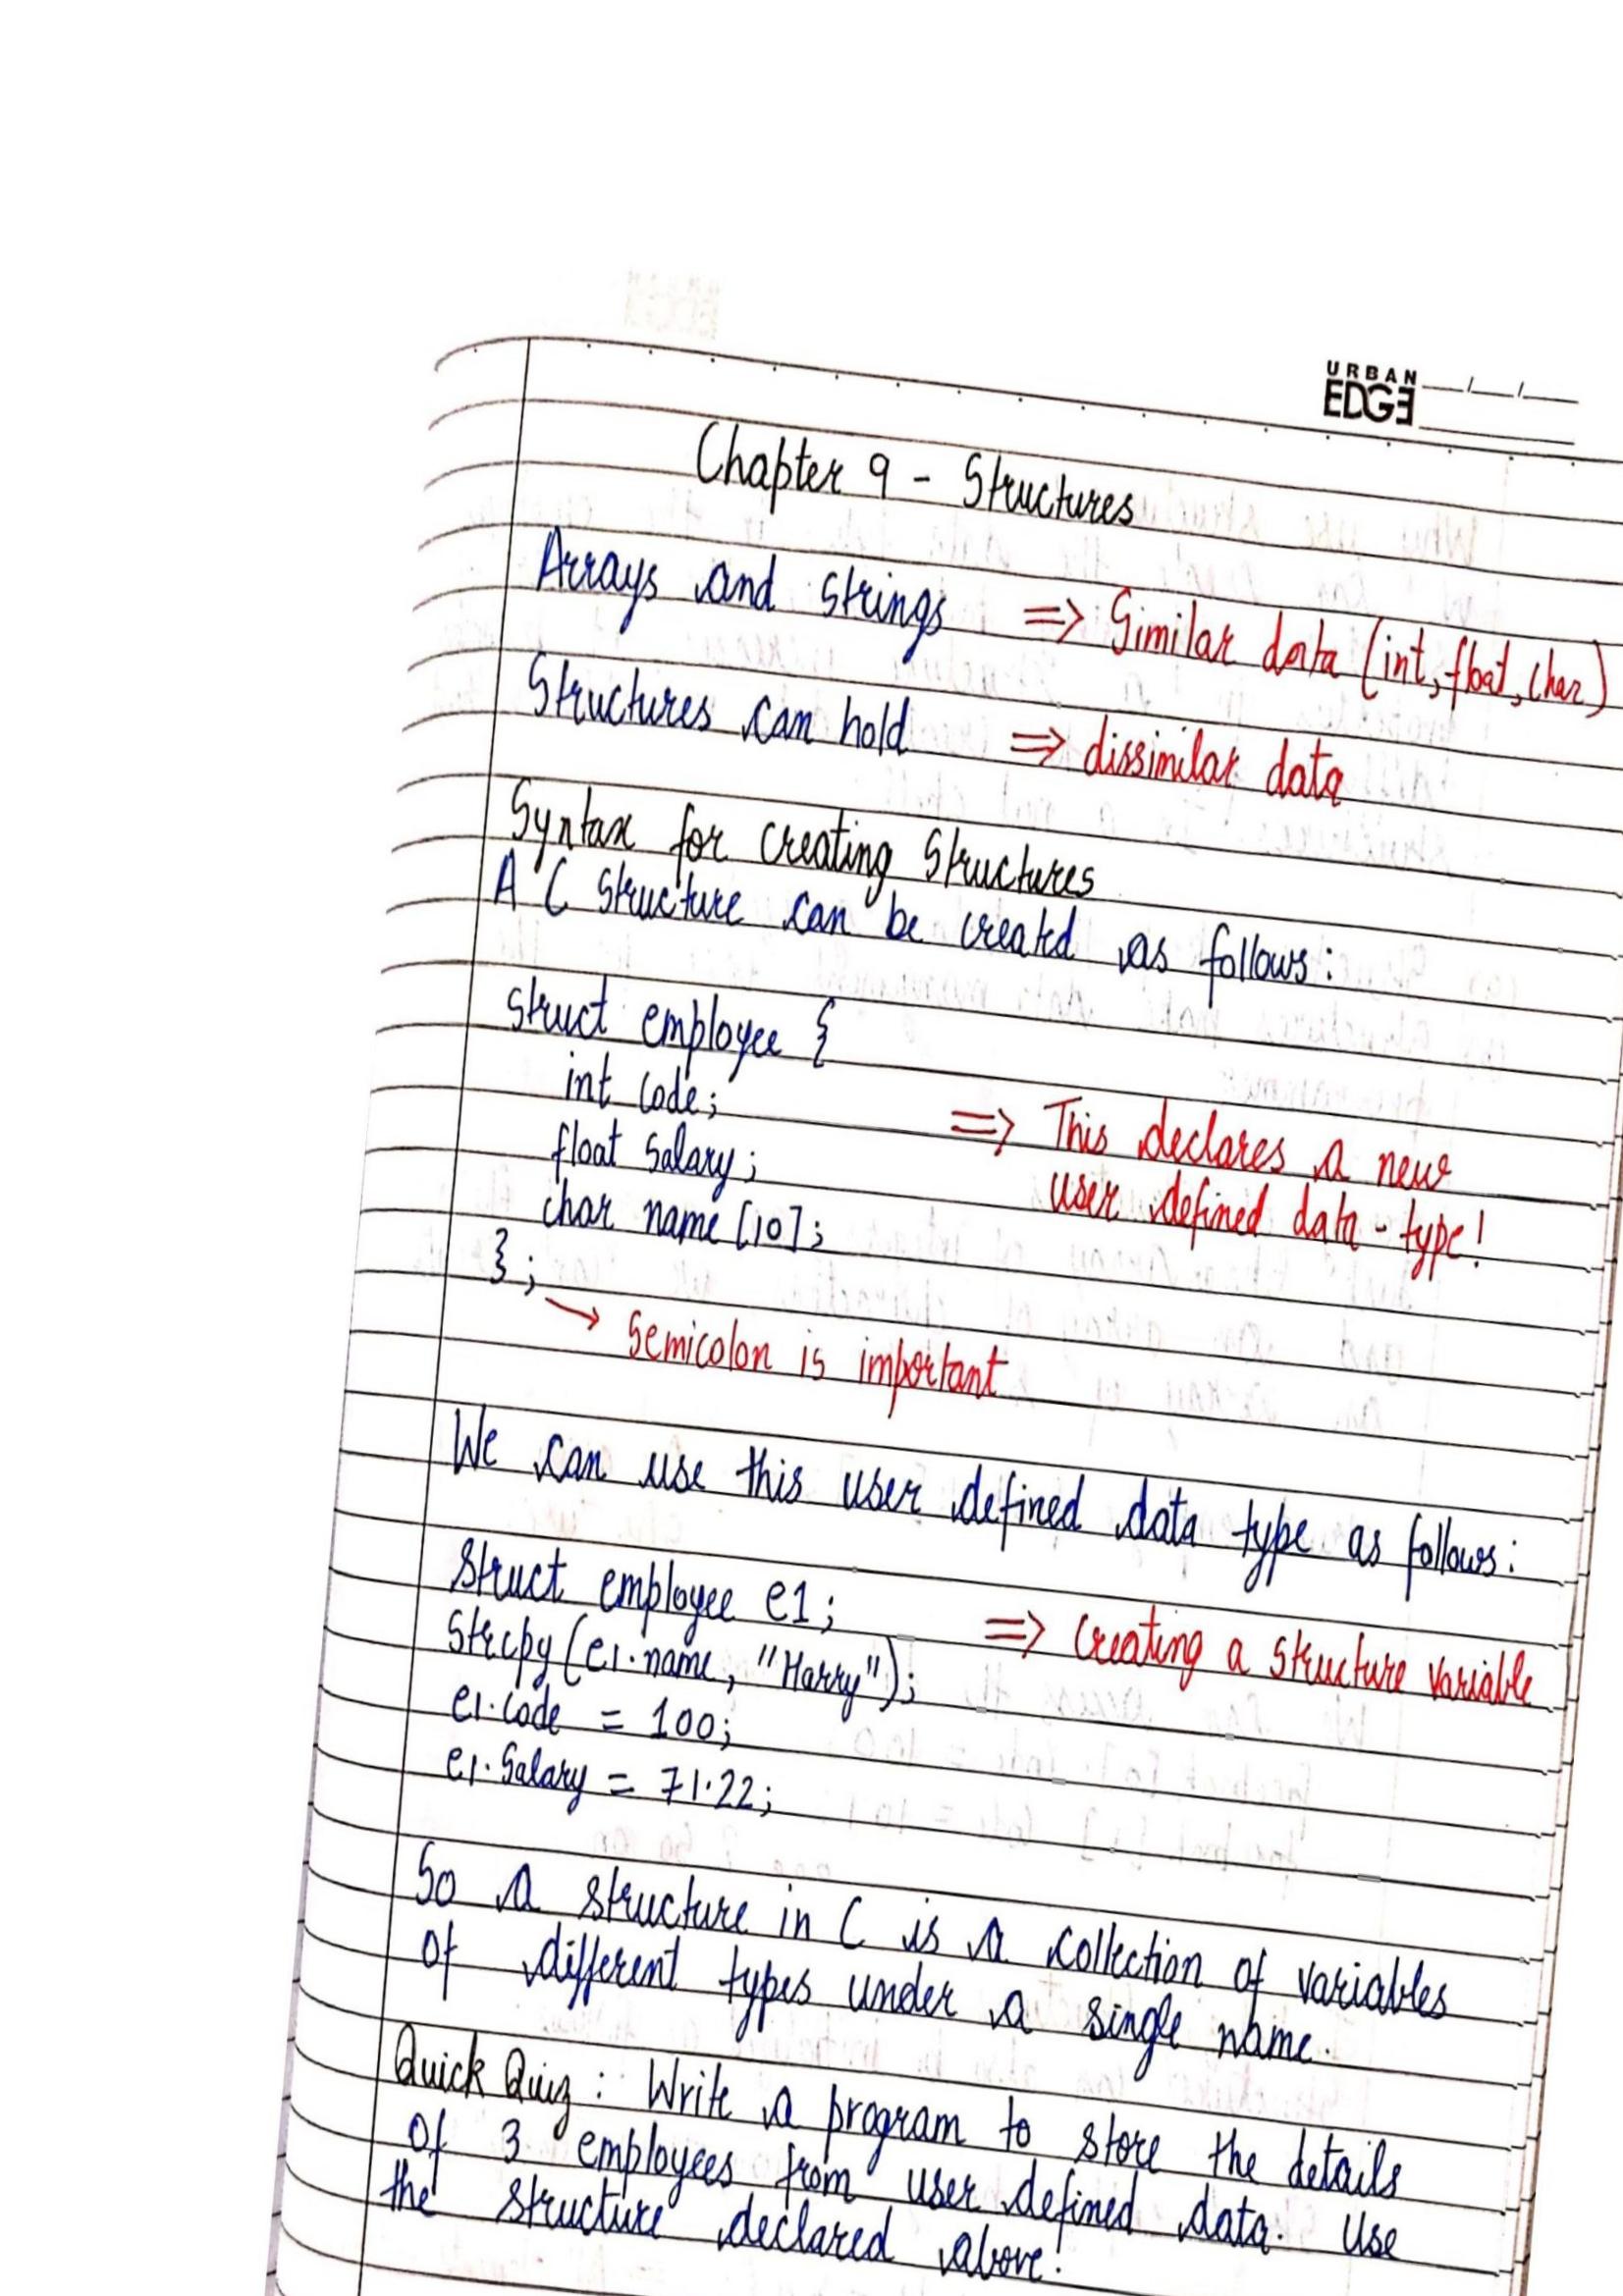 URBAN
EDGE
Chapter 9 - Structures
Arrays and strings => Similar data (int, float, char)
Structures can hold => dissimilar data
Syntax for creating Structures
A C Structure can be created as follows:
struct employee {
int code;
float salary;
char name [10];
};
=> This declares a new
user defined data-type!
→ Semicolon is important
We can use this user defined data type as follows:
struct employee e1; => creating a structure variable
strcpy(e1.name, "Harry");
e1.code = 100;
e1.Salary = 71.22;
So a structure in C is a collection of variables
of different types under a single name.
Quick Quiz: Write a program to store the details
of 3 employees from user defined data. Use
the structure declared above!